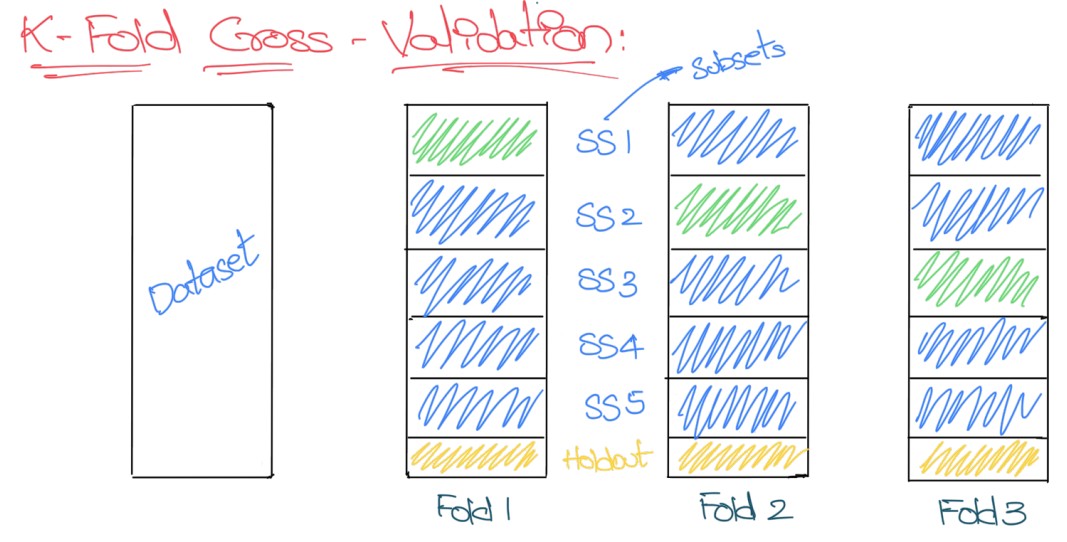 K-Fold Cross-Validation:
Subsets
SS1
SS2
Dataset
SS3
SS4
SS5
Holdout
Fold 1
Fold 2
Fold 3